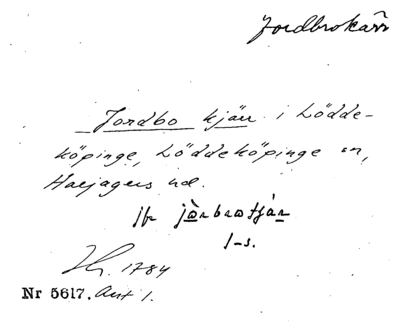 Jordbrokärr
Jordbo kjärr i Lödde-
köpinge, Löddeköpinge sn,
Harjagers hd.
Jfr
1-s.
1784
Nr 5617. Akt 1.